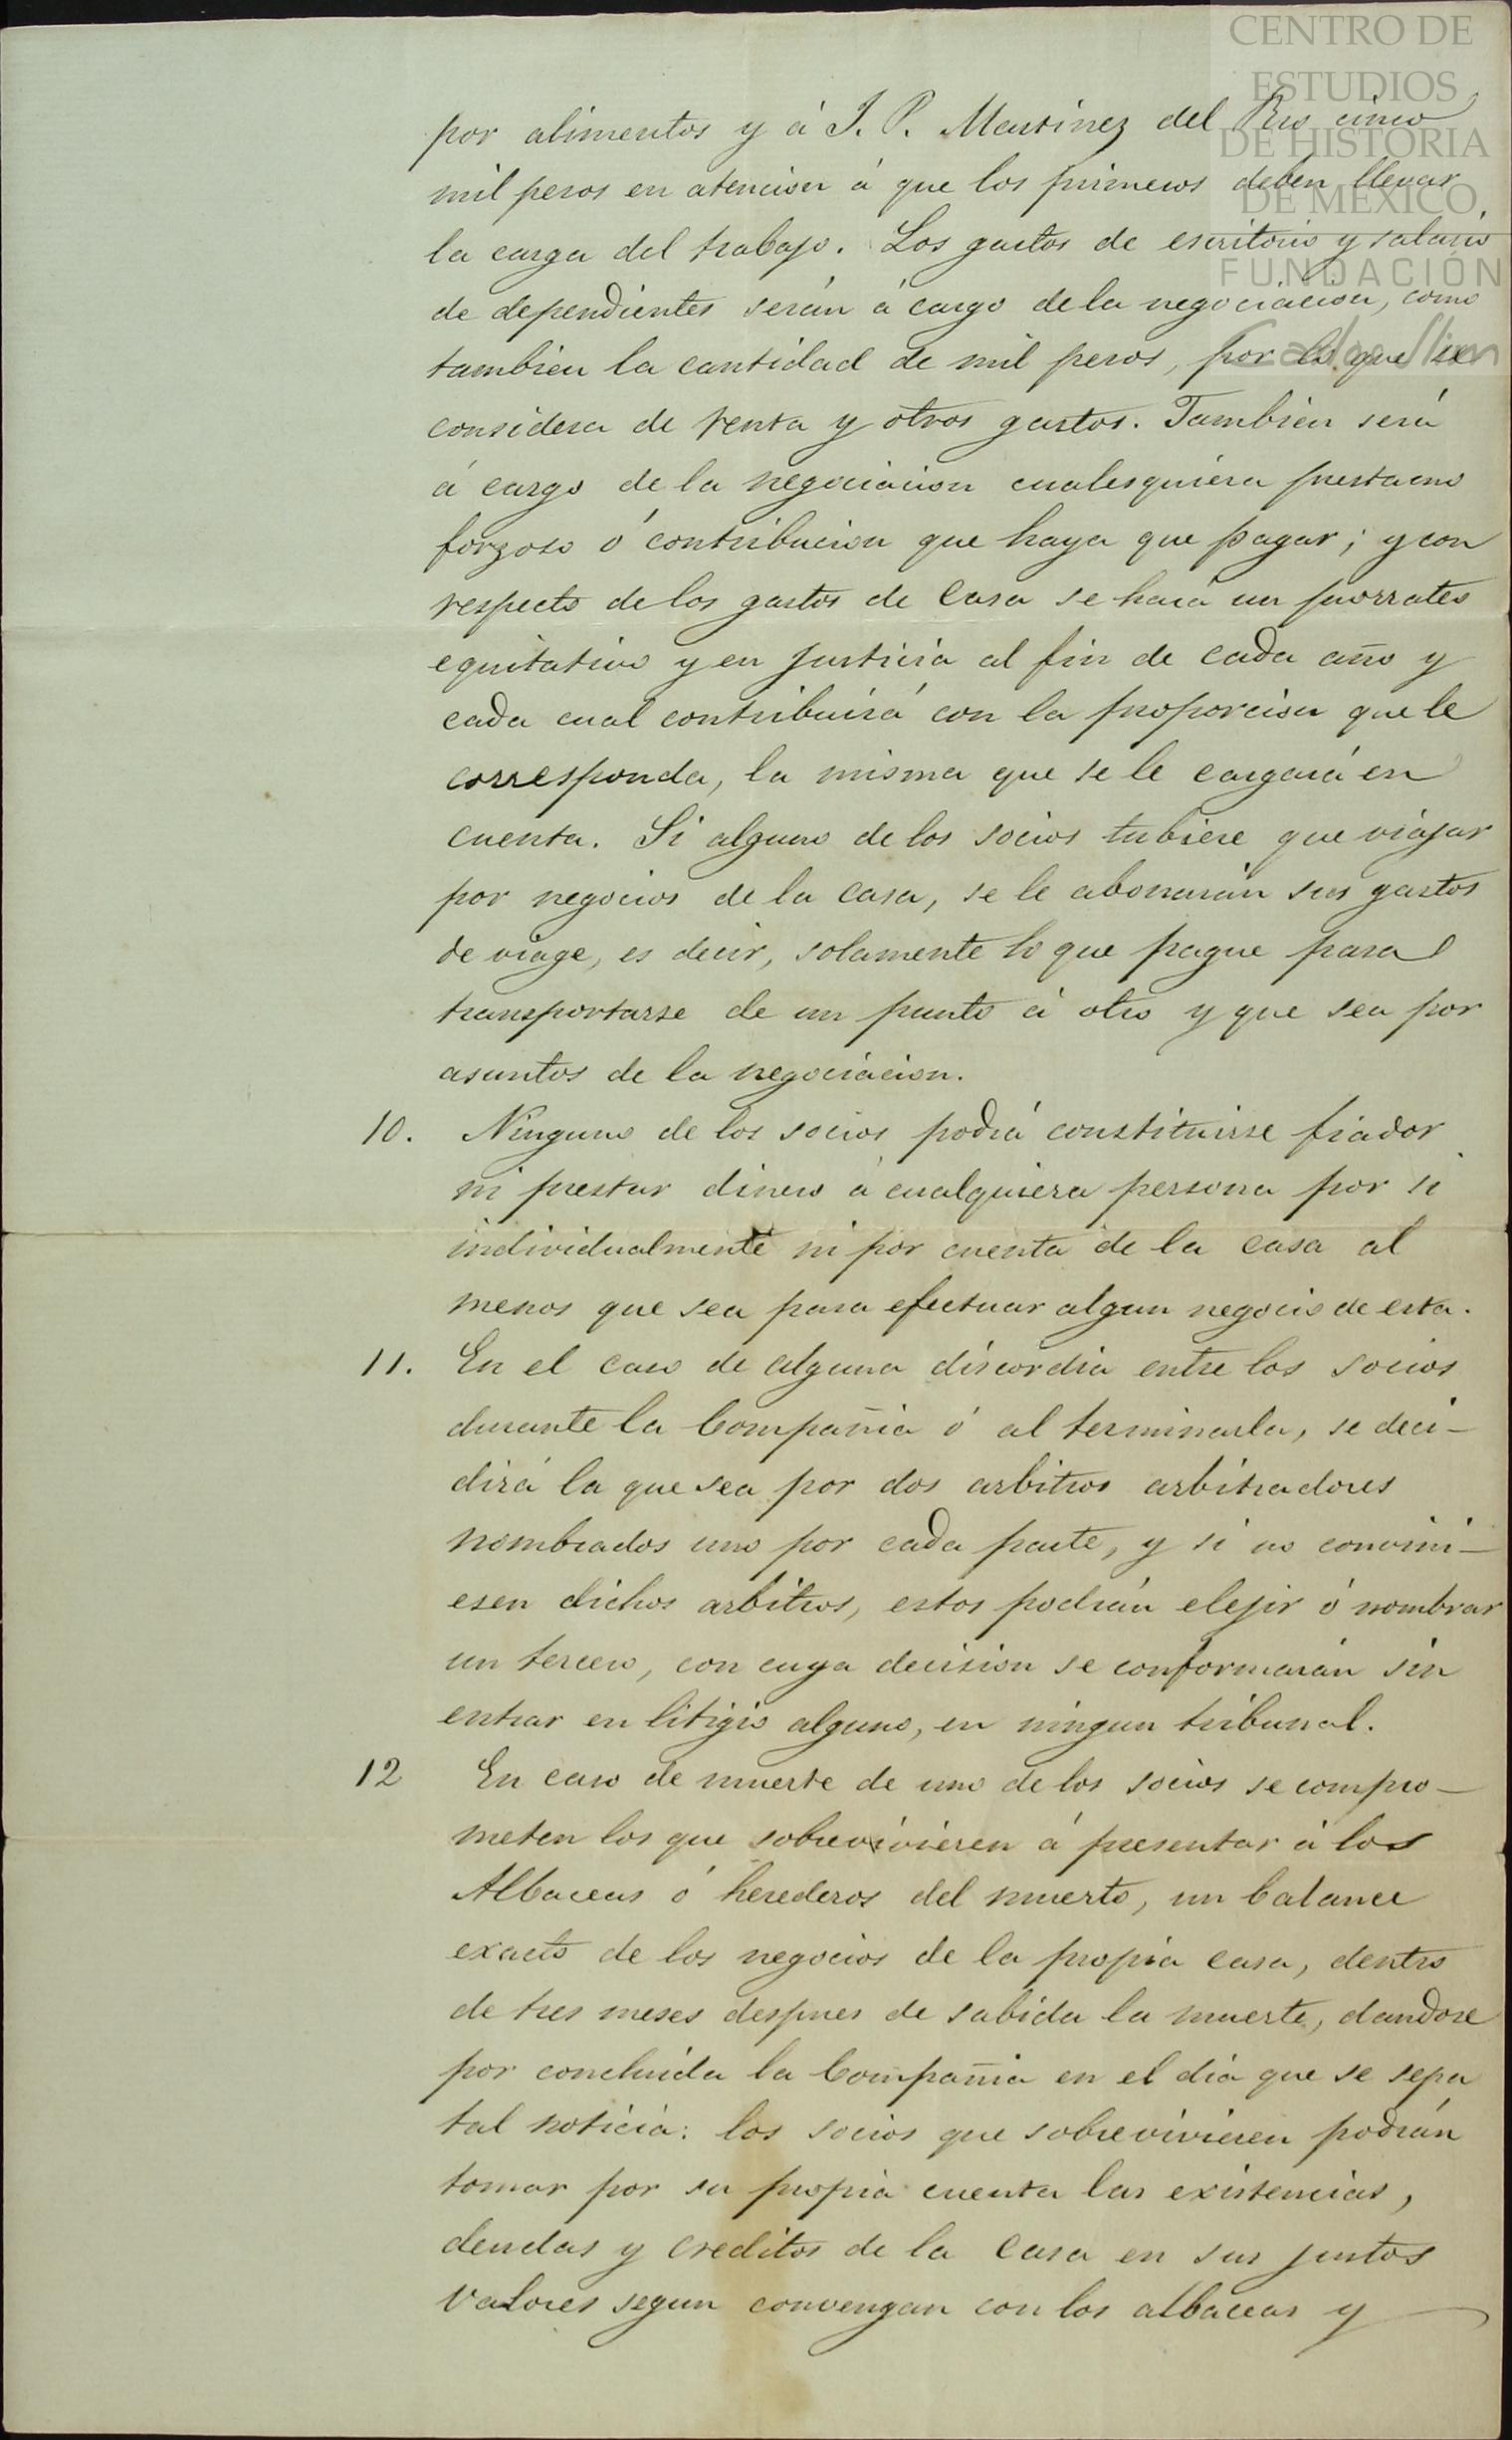 CENTRO DE
ESTUDIOS
DE HISTORIA
DE MÉXICO
FUNDACIÓN
Carlos Slim
por alimentos y á J. P. Martinez del Rio cinco
mil pesos en atencion á que los primeros deben llevar
la carga del trabajo. Los gastos de escritorio y salario
de dependientes serán á cargo de la negociacion, como
tambien la cantidad de mil pesos, por lo que se
considera de renta y otros gastos. Tambien será
á cargo de la negociacion cualesquiera prestamo
forzoso ó contribucion que haya que pagar; y con
respecto de los gastos de Casa se hará un prorrateo
equitativo y en Justicia al fin de cada año y
cada cual contribuirá con la proporcion que le
corresponda, la misma que se le cargará en
cuenta. Si alguno de los socios tubiere que viajar
por negocios de la casa, se le abonarán sus gastos
de viage, es decir, solamente lo que pague para
transportarse de un punto á otro y que sea por
asuntos de la negociacion.
10. Ninguno de los socios podrá constituirse fiador
ni prestar dinero á cualquiera persona por si
individualmente ni por cuenta de la casa al
menos que sea para efectuar algun negocio de esta.
11. En el caso de alguna discordia entre los socios
durante la Compañia ó al terminarla, se deci-
dirá la que sea por dos arbitros arbitradores
nombrados uno por cada parte, y si no convini-
esen dichos arbitros, estos podrán elejir ó nombrar
un tercero, con cuya decision se conformarán sin
entrar en litigio alguno, en ningun tribunal.
12 En caso de muerte de uno de los socios se compro-
meten los que sobrevivieren á presentar á los
Albaceas ó herederos del muerto, un balance
exacto de los negocios de la propia casa, dentro
de tres meses despues de sabida la muerte, dandose
por concluida la Compañia en el dia que se sepa
tal noticia: los socios que sobrevivieren podrán
tomar por su propia cuenta las existencias,
deudas y creditos de la Casa en sus justos
valores segun convengan con los albaceas y